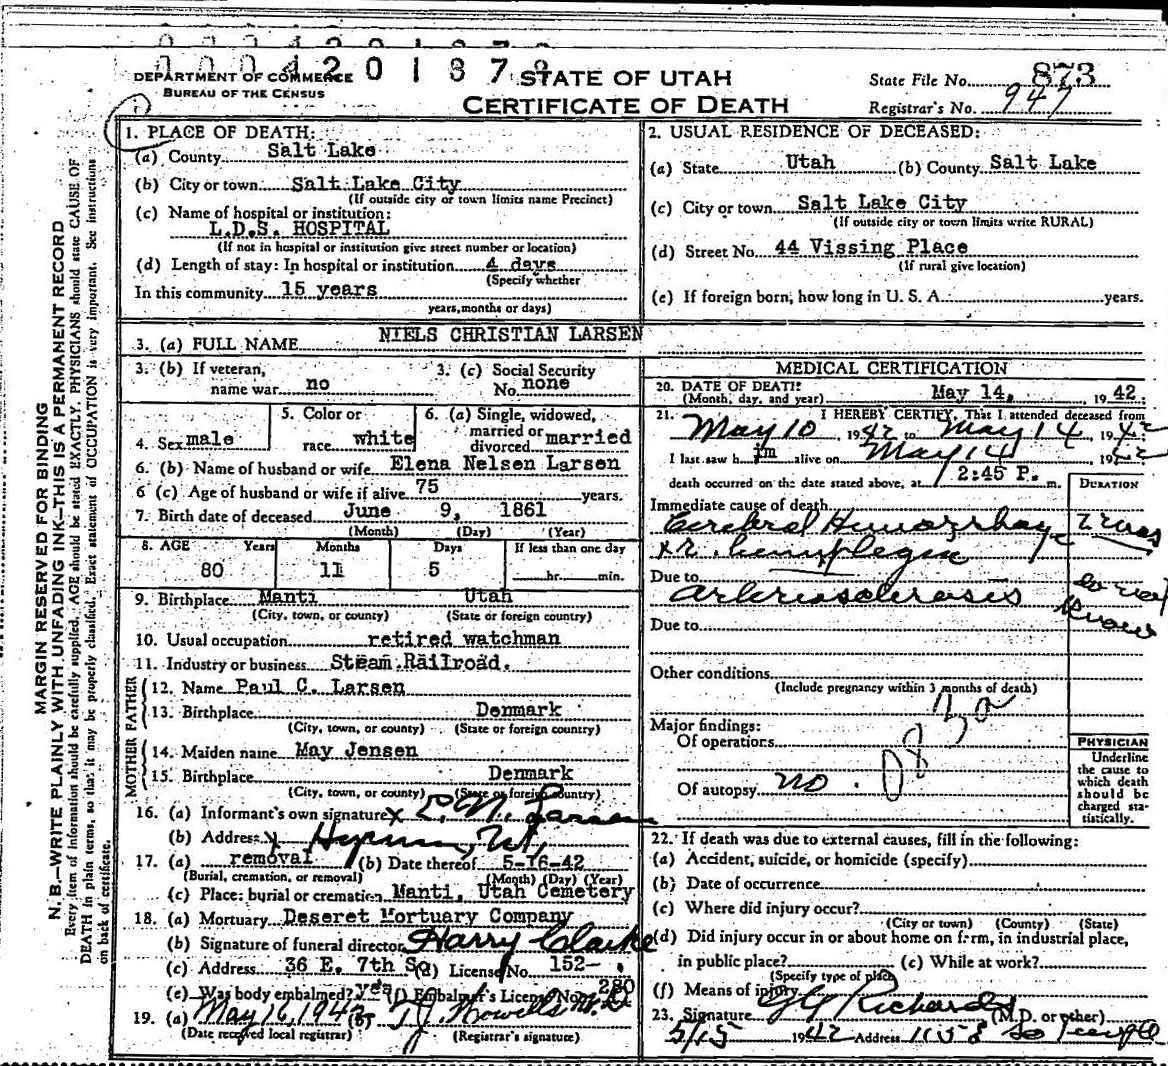 0004201873
DEPARTMENT OF COMMERCE
BUREAU OF THE CENSUS
STATE OF UTAH
CERTIFICATE OF DEATH
State File No. 873
Registrar's No. 947
MARGIN RESERVED FOR BINDING
N. B.—WRITE PLAINLY WITH UNFADING INK—THIS IS A PERMANENT RECORD
Every item of information should be carefully supplied. AGE should be stated EXACTLY. PHYSICIANS should state CAUSE OF
DEATH in plain terms, so that it may be properly classified. Exact statement of OCCUPATION is very important. See instructions
on back of certificate.
1. PLACE OF DEATH:
(a) County Salt Lake
(b) City or town Salt Lake City
(If outside city or town limits name Precinct)
(c) Name of hospital or institution:
L.D.S. HOSPITAL
(If not in hospital or institution give street number or location)
(d) Length of stay: In hospital or institution 4 days
(Specify whether
In this community 15 years
years, months or days)
2. USUAL RESIDENCE OF DECEASED:
(a) State Utah (b) County Salt Lake
(c) City or town Salt Lake City
(If outside city or town limits write RURAL)
(d) Street No. 44 Vissing Place
(If rural give location)
(e) If foreign born, how long in U. S. A. years.
3. (a) FULL NAME NIELS CHRISTIAN LARSEN
3. (b) If veteran,
name war no
3. (c) Social Security
No. none
4. Sex male
5. Color or
race white
6. (a) Single, widowed,
married or
divorced married
6. (b) Name of husband or wife Elena Nelsen Larsen
6 (c) Age of husband or wife if alive 75 years.
7. Birth date of deceased June 9, 1861
(Month) (Day) (Year)
8. AGE Years Months Days If less than one day
80 11 5 hr. min.
9. Birthplace Manti Utah
(City, town, or county) (State or foreign country)
10. Usual occupation retired watchman
11. Industry or business Steam Railroad.
FATHER
12. Name Paul C. Larsen
13. Birthplace Denmark
(City, town, or county) (State or foreign country)
MOTHER
14. Maiden name May Jensen
15. Birthplace Denmark
(City, town, or county) (State or foreign country)
16. (a) Informant's own signature x E. N. Larsen
(b) Address x Hyrum, Ut.
17. (a) removal (b) Date thereof 5-16-42
(Burial, cremation, or removal) (Month) (Day) (Year)
(c) Place: burial or cremation Manti, Utah Cemetery
18. (a) Mortuary Deseret Mortuary Company
(b) Signature of funeral director Harry Clarke
(c) Address 36 E. 7th So. (d) License No. 152-
(e) Was body embalmed? yes (f) Embalmer's License No. 280
19. (a) May 16, 1942 (b) T. J. Howells M.D.
(Date received local registrar) (Registrar's signature)
MEDICAL CERTIFICATION
20. DATE OF DEATH:
(Month, day, and year) May 14, 1942.
21. I HEREBY CERTIFY, That I attended deceased from
May 10, 1942 to May 14 1942
I last saw h im alive on May 14 1942
death occurred on the date stated above, at 2:45 P. m.
DURATION
Immediate cause of death
Cerebral Hemorrhage
x r. hemiplegia
Due to
Arteriosclerosis
do not
know
Due to
Other conditions
(Include pregnancy within 3 months of death)
Major findings:
Of operations
Of autopsy no.
PHYSICIAN
Underline
the cause to
which death
should be
charged sta-
tistically.
22. If death was due to external causes, fill in the following:
(a) Accident, suicide, or homicide (specify)
(b) Date of occurrence
(c) Where did injury occur?
(City or town) (County) (State)
(d) Did injury occur in or about home on farm, in industrial place,
in public place? (e) While at work?
(Specify type of place)
(f) Means of injury
23. Signature G G Richards (M.D. or other)
5/15 1942 Address 1158 So Temple